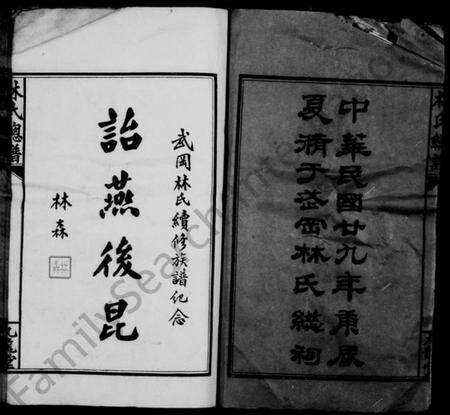 中華民國廿九年庚辰
夏脩于武岡林氏總祠
武岡林氏續修族譜紀念
詒燕後昆
林森
林氏總譜
FamilySearch